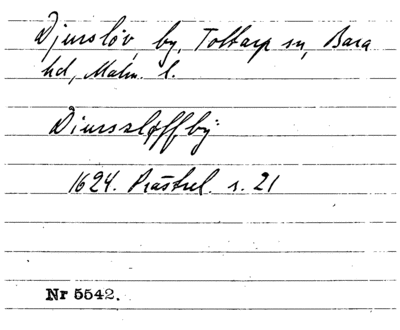 Djurslöv, by, Tottarp sn, Bara
hd, Malm. l.
Diurssløffbÿ
1624. Prästrel. s. 21
Nr 5542.